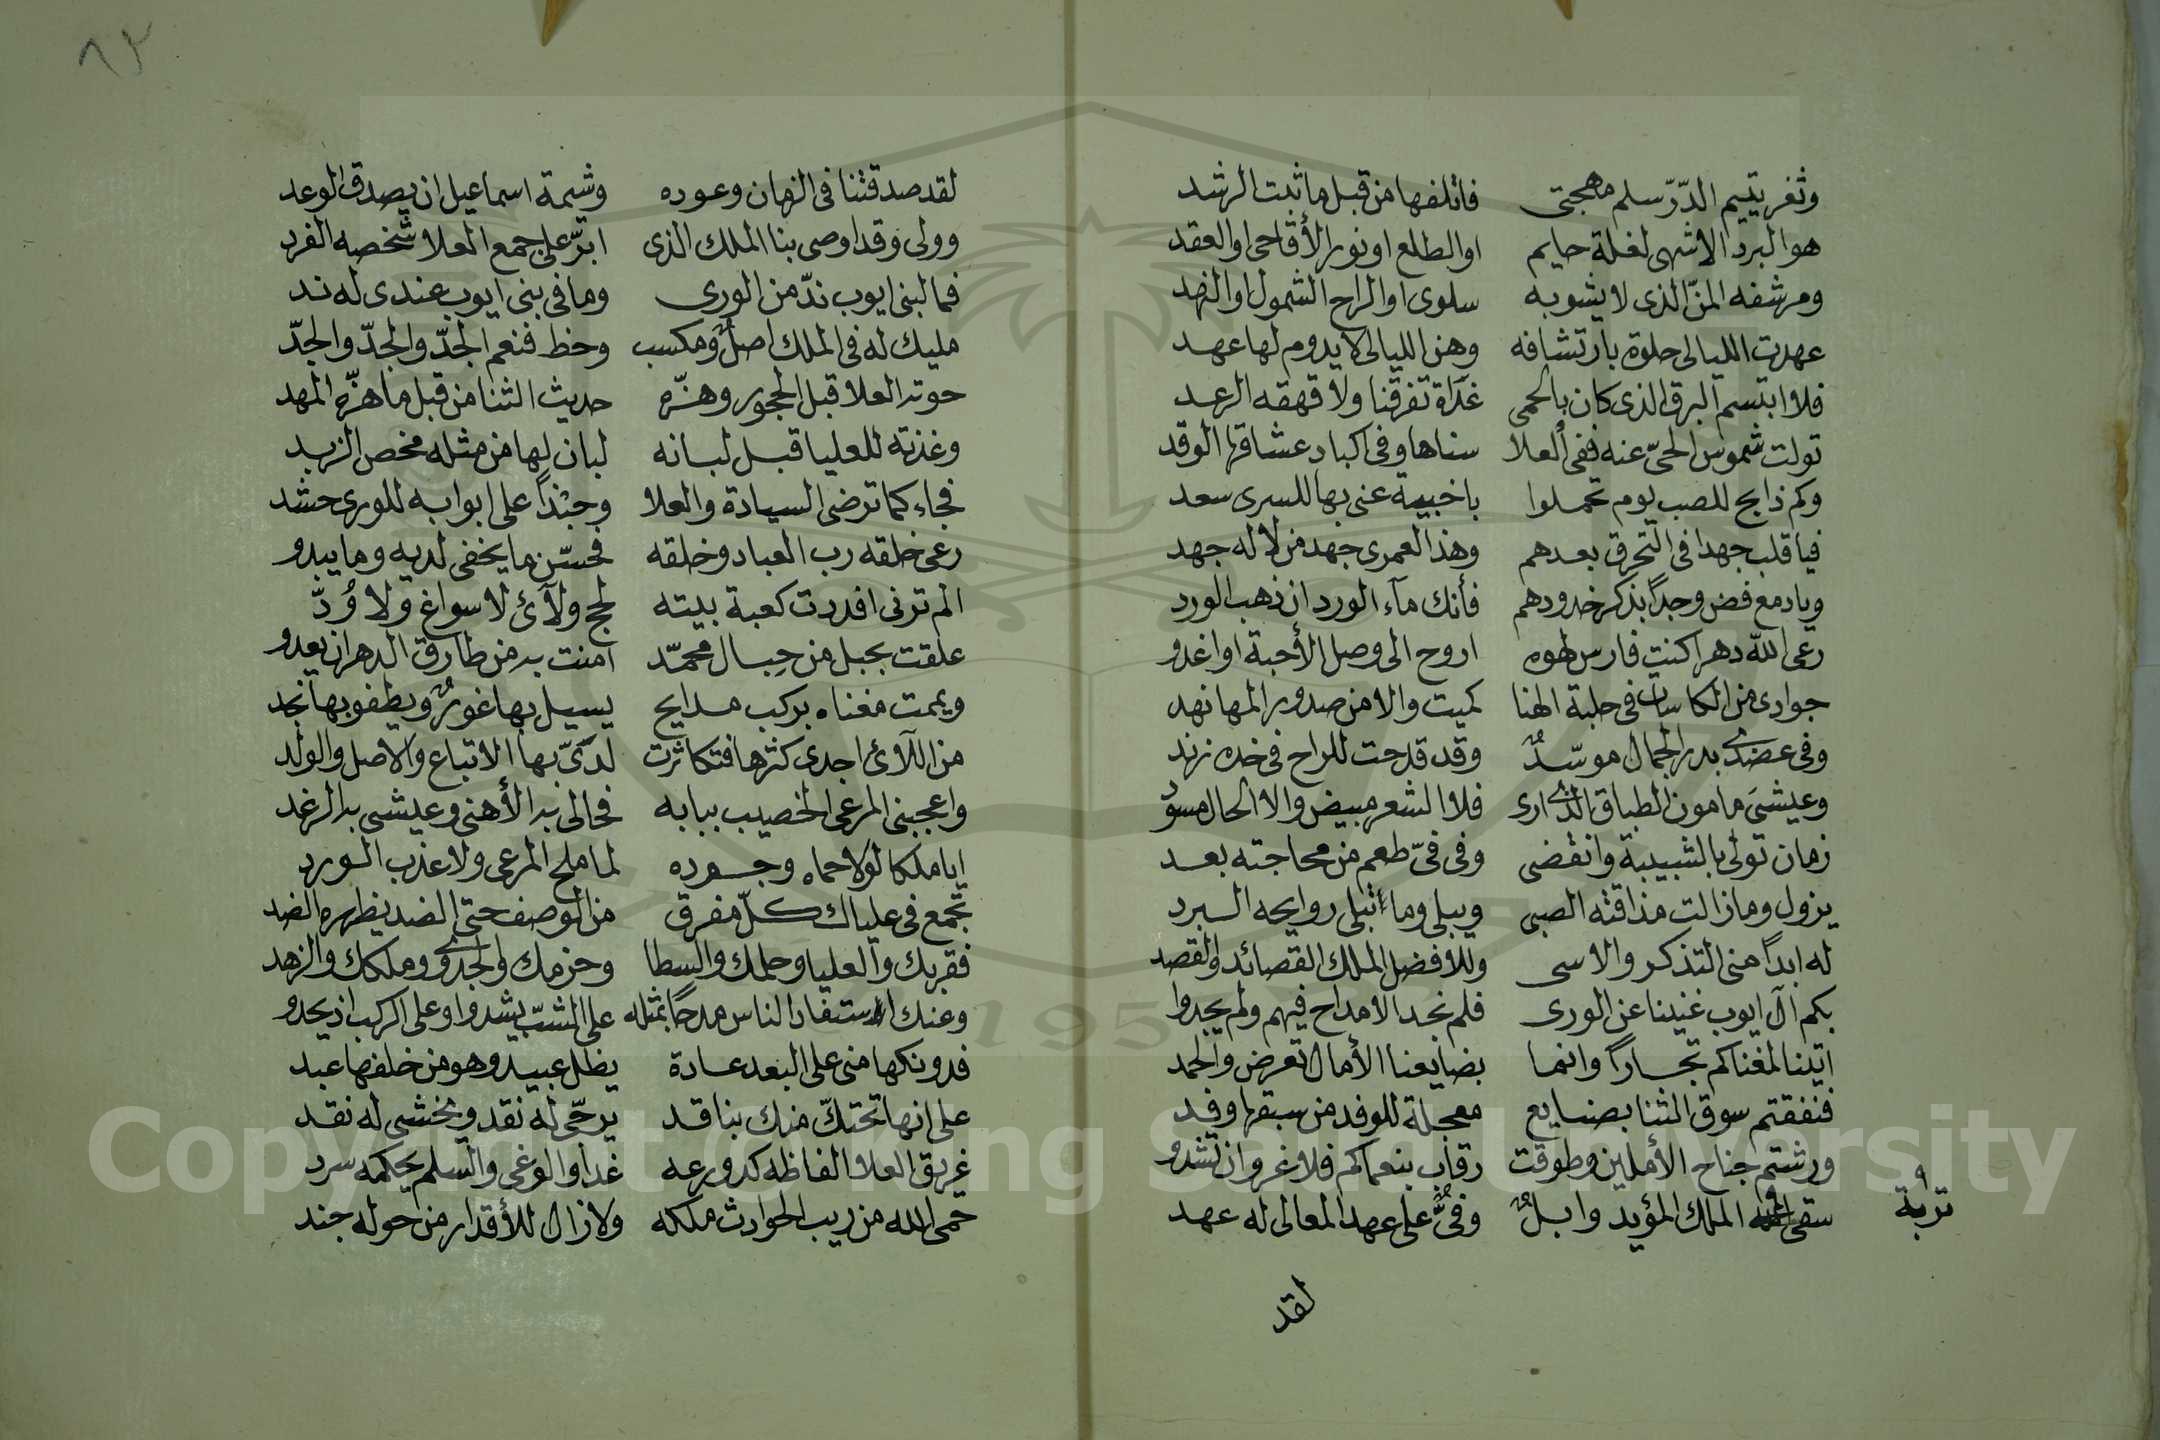 وثغر يتيم الدّرّ سلم مهجتى فاتلفها من قبل ما ثبت الرشد
هو البرد الاشهى لغلة حايم او الطلع او نور الأقاحى او العقد
ومرشفه المنّ الذى لا يشوبه سلوى او الراح الشمول او الشهد
عهدت الليالى حلوة بارتشافه وهن الليالى لا يدوم لها عهد
فلا ابتسم البرق الذى كان بالحمى غداة تفرقنا ولا قهقه الرعد
تولت شموس الحىّ عنه ففى العلا سناها وفى اكباد عشاقها الوقد
وكم ذابح للصب يوم تحملوا باخبية عنى بها للسرى سعد
فيا قلب جهدا فى التحرق بعدهم وهذا لعمرى جهد من لا له جهد
ويا دمع فض وجداً بذكر خدودهم فأنك مآء الورد ان ذهب الورد
رعى الله دهرا كنت فارس لهوه اروح الى وصل الأحبة او اغدو
جوادى من الكاسات فى حلبة الهنا كميت والا من صدور المها نهد
وفى عضدى بدر الجمال موسّدٌ وقد قدحت للراح فى خده زند
وعيشى مامون الطباق الذى ارى فلا الشعر مبيض ولا الحال مسود
زمان تولى بالشبيبة وانقضى وفى فىّ طعم من مجاجته بعد
يزول وما زالت مذاقته الصبى ويبلى وما تبلى روايحه البرد
له ابداً منى التذكر والاسى وللافضل الملك القصائد والقصد
بكم آل ايوب غنينا عن الورى فلم نجد الامداح فيهم ولم يجدوا
اتينا لمغناكم تجاراً وانما بضايعنا الأمال تعرض والحمد
فنفقتم سوق الثنا بصنايع معجلة للوفد من سبقها وفد
ورشتم جناح الأملين وطوقت رقاب بنعماكم فلا غرو ان تشدو
سقى الملك المؤيد وابلٌ وفىٌّ على عهد المعالى له عهد
تربة
لقد
٦٢
لقد صدقتنا فى الزمان وعوده وشيمة اسماعيل ان يصدق الوعد
وولى وقد اوصى بنا الملك الذى ابرّ على جمع العلا شخصه الفرد
فما لبنى ايوب ندّ من الورى وما فى بنى ايوب عندى له ند
مليك له فى الملك اصلٌ ومكسب وحظ فنعم الجدّ والجدّ والجدّ
حوته العلا قبل الحجور وهزّه حديث الثنا من قبل ما هزّه المهد
وغذته للعليا قبل لبانه لبان لها من مثله مخض الزبد
فجاء كما ترضى السيادة والعلا وجنداً على ابوابه للورى حشد
رعى خلقه رب العباد وخلقه فحسّن ما يخفى لديه وما يبدو
الم ترنى افردت كعبة بيته لحج ولآئ لا سواع ولا وُدّ
علقت بحبل من حبال محمّد امنت به من طارق الدهر ان يعدو
ويممت مغناه بركب مدايح يسيل بها غورٌ ويطفو بها نجد
من اللآئ اجدى كثرها فتكاثرت لدىّ بها الاتباع والاصل والولد
واعجبنى المرعى الخصيب ببابه فحالى به الأهنى وعيشى به الرغد
ايا ملكا لولا حماه وجوده لما ملح المرعى ولا عذب الورد
تجمع فى علياك كلّ مفرق من الوصف حتى الضد يظهره الضد
فقربك والعليا وحلمك والسطا وحزمك والجدوى وملكك والزهد
وعنك استفاد الناس مدحاً بمثله على الشتّ يشدوا وعلى الركب اذ يحدو
فدونكها منى على البعد عادة يظل عبيد وهو من خلفها عبد
على انها تحتكّ منك بناقد يرجّى له نقد ويخشى له نقد
غريق العلا الفاظه كدورعه غداو الوغى والسلم يحكمه سرد
حمى الله من ريب الحوادث ملكه ولا زال للأقدار من حوله جند